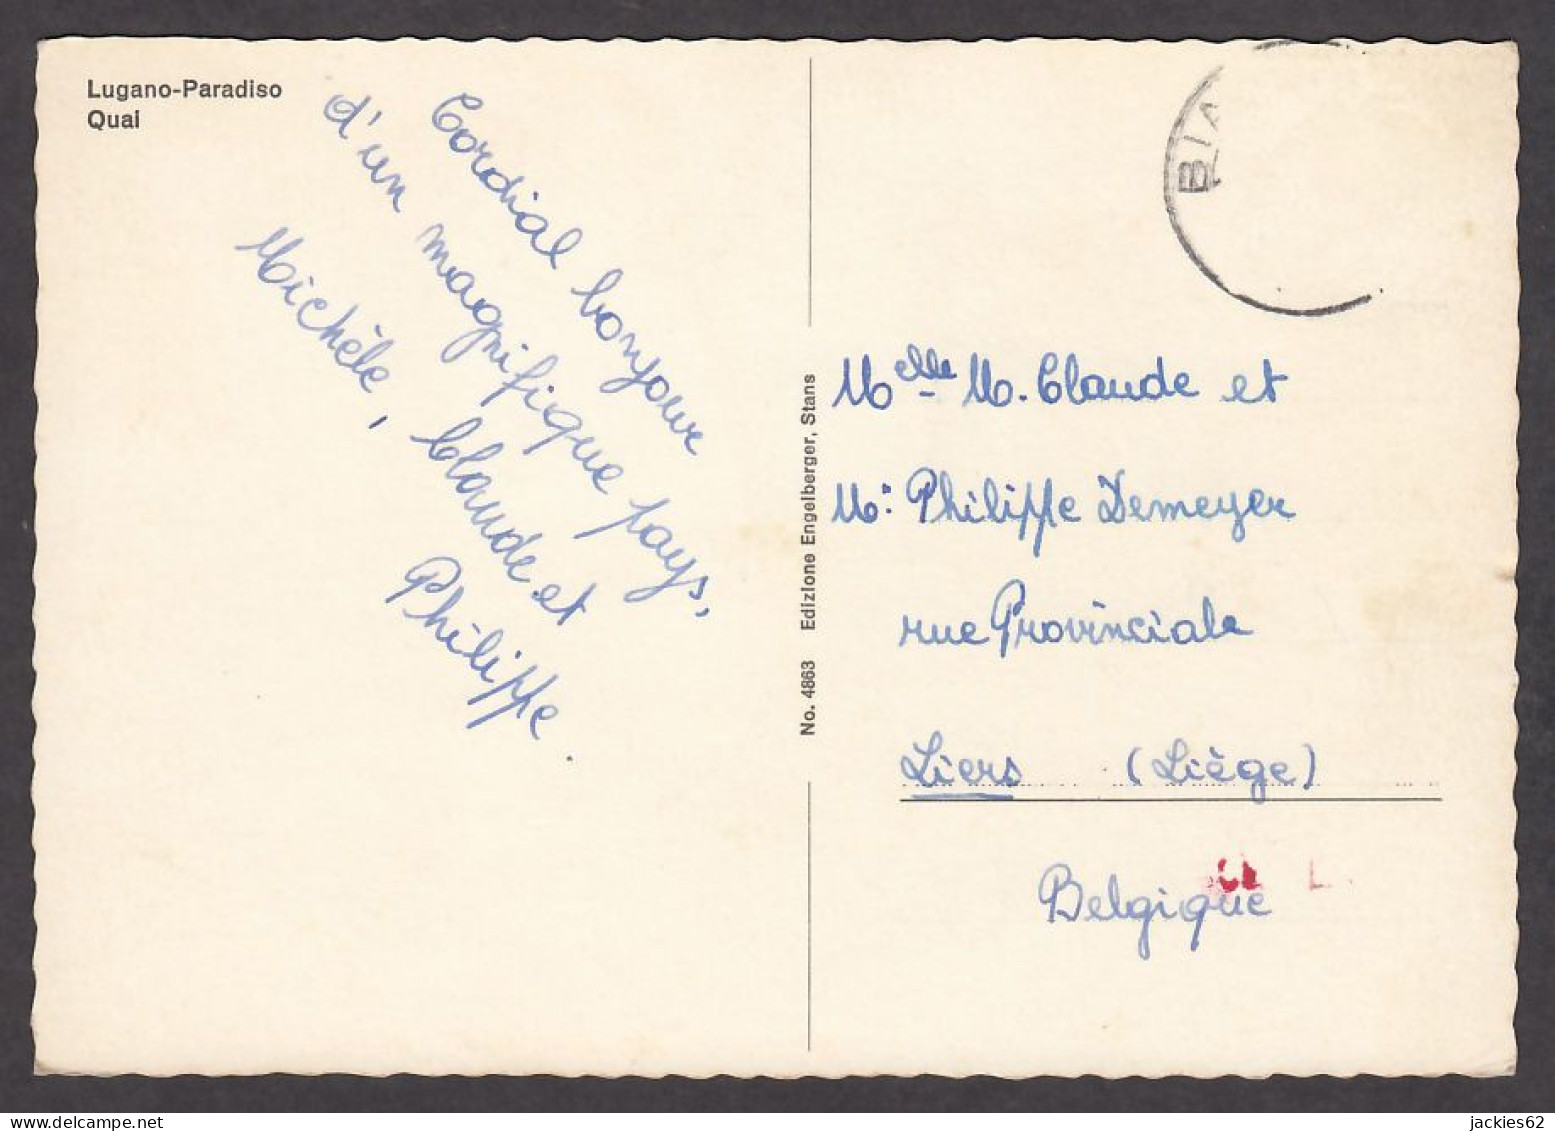 Lugano-Paradiso
Quai
Cordial bonjour
d'un magnifique pays,
Michèle, Claude et
Philippe.
No. 4863 Edizione Engelberger, Stans
Melle M. Claude et
Mr Philippe Demeyer
rue Provinciale
Liers (Liège)
Belgique
jackies62